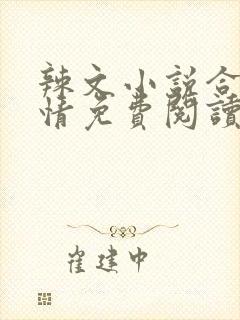 辣文小说合
情免費閱讀
崔建中